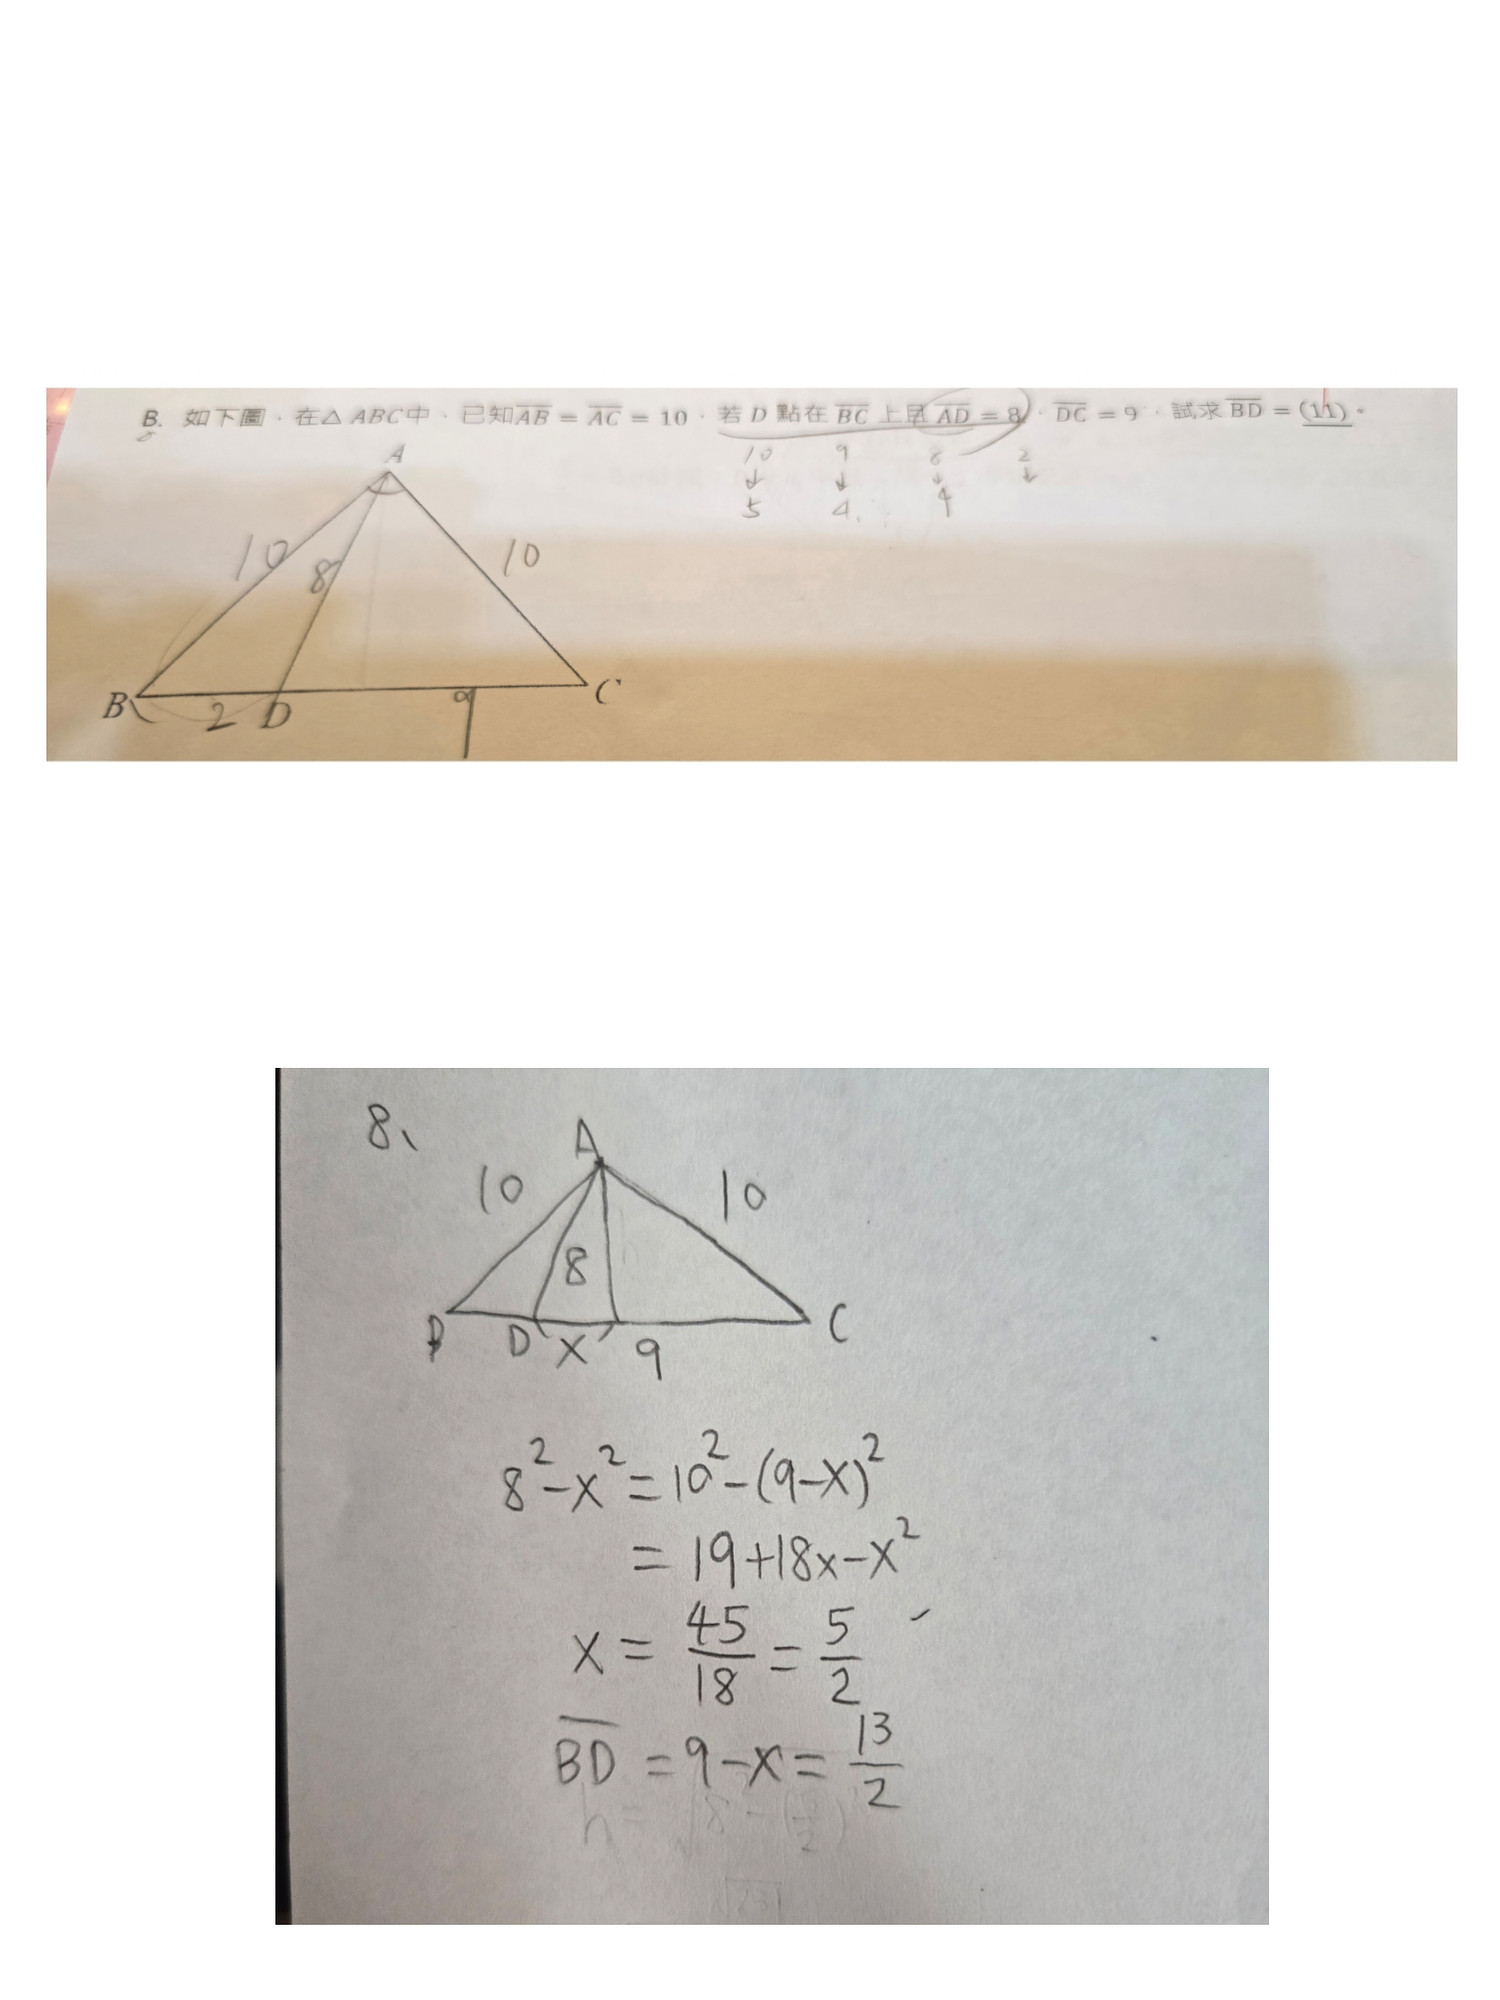 B. 如下圖，在△ABC中、已知AB = AC = 10，若 D 點在 BC 上且 AD = 8，DC = 9，試求 BD = (11)。
10 9 8 2
↓ ↓ ↓ ↓
5 4. 4
A
10 8 10
B 2 D 9 C
8、
A
10 10
8 h
B D x 9 C
8²-x²=10²-(9-x)²
= 19+18x-x²
x = 45/18 = 5/2
BD = 9-x = 13/2